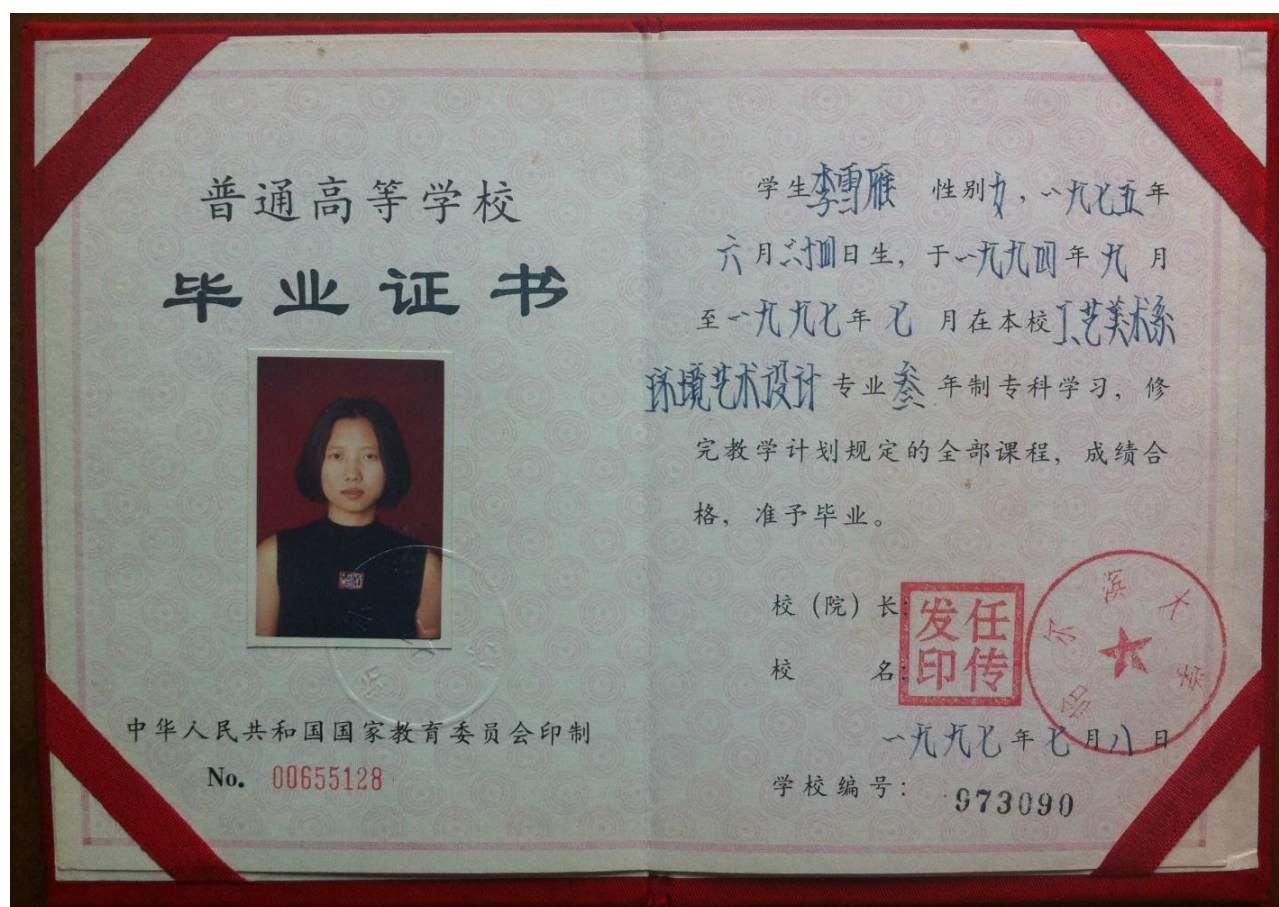 普通高等学校
毕业证书
中华人民共和国国家教育委员会印制
No. 00655128
学生李雪雁 性别女，一九七五年
六月二十四日生，于一九九四年九月
至一九九七年七月在本校工艺美术系
环境艺术设计专业叁年制专科学习，修
完教学计划规定的全部课程，成绩合
格，准予毕业。
校（院）长：
校 名：
任传发印
哈尔滨大学
一九九七年七月八日
学校编号：973090